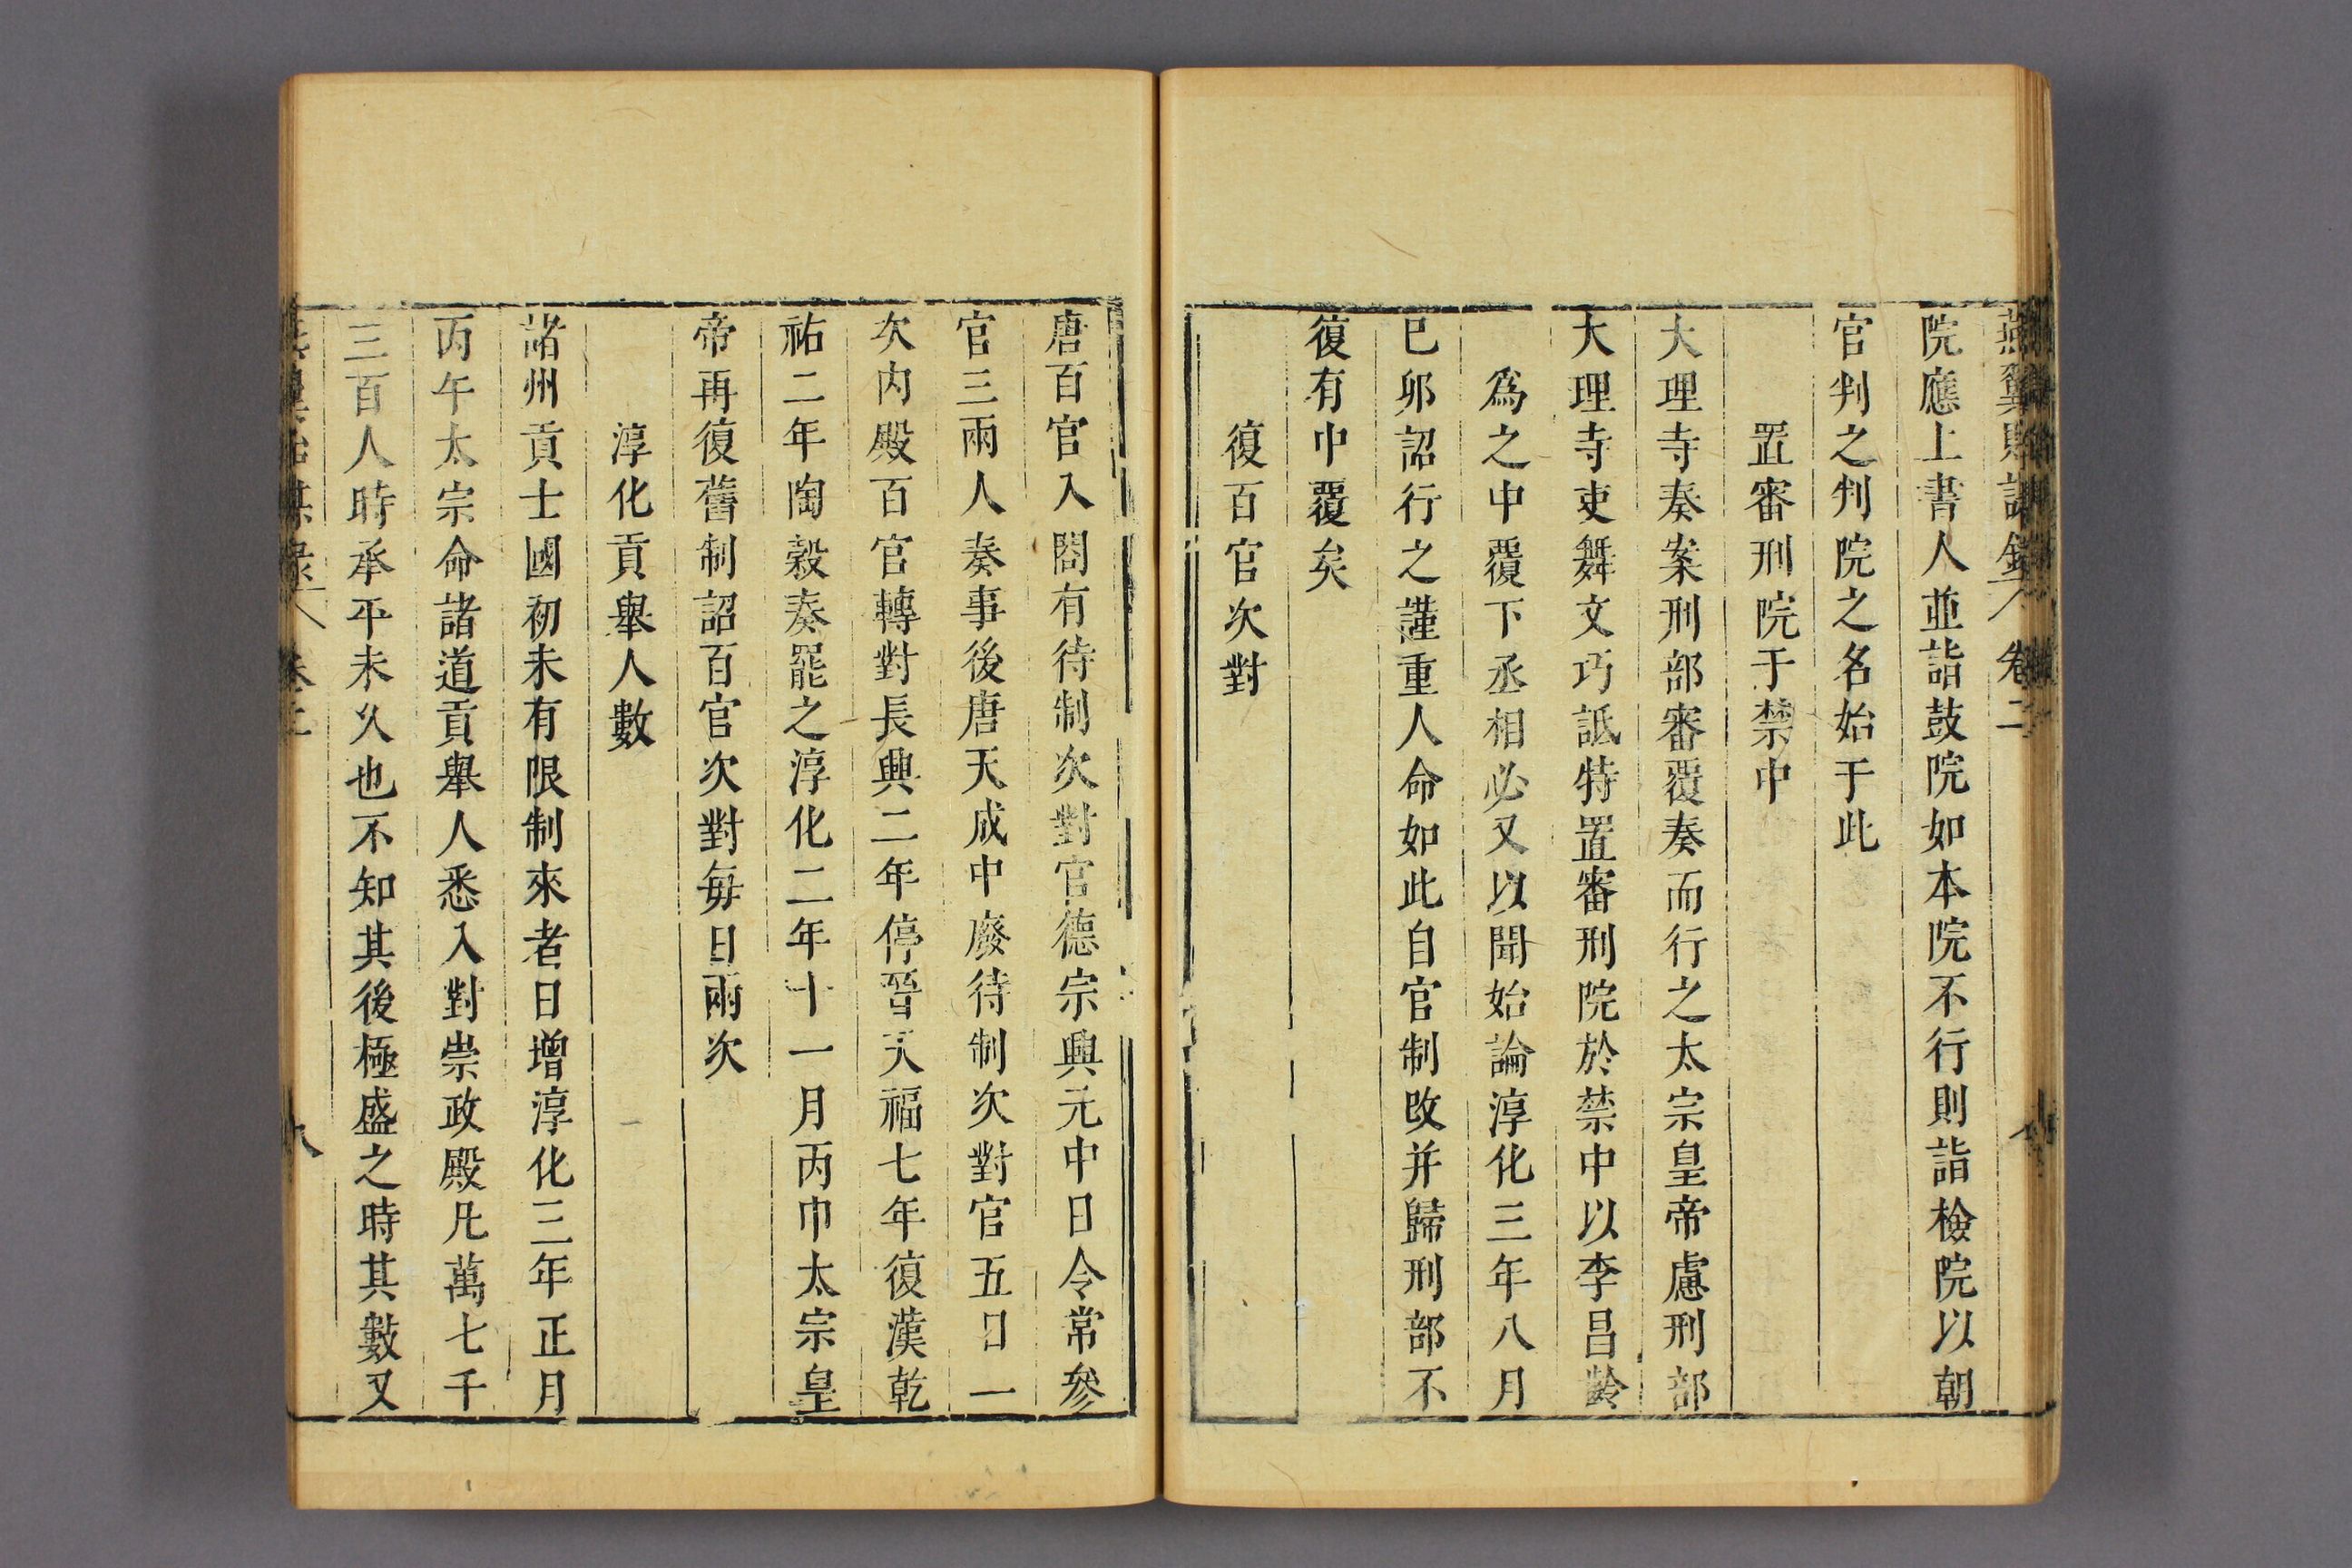 燕翼貽謀錄 卷二
院應上書人並詣鼓院如本院不行則詣檢院以朝
官判之判院之名始于此
置審刑院于禁中
大理寺奏案刑部審覆奏而行之太宗皇帝慮刑部
大理寺吏舞文巧詆特置審刑院於禁中以李昌齡
爲之中覆下丞相必又以聞始論淳化三年八月
已卯詔行之謹重人命如此自官制改并歸刑部不
復有中覆矣
復百官次對
唐百官入閤有待制次對官德宗興元中日令常參
官三兩人奏事後唐天成中廢待制次對官五日一
次内殿百官轉對長興二年停晉天福七年復漢乾
祐二年陶穀奏罷之淳化二年十一月丙巾太宗皇
帝再復舊制詔百官次對毎日兩次
淳化貢舉人數
諸州貢士國初未有限制來者日增淳化三年正月
丙午太宗命諸道貢舉人悉入對崇政殿凡萬七千
三百人時承平未久也不知其後極盛之時其數又
八